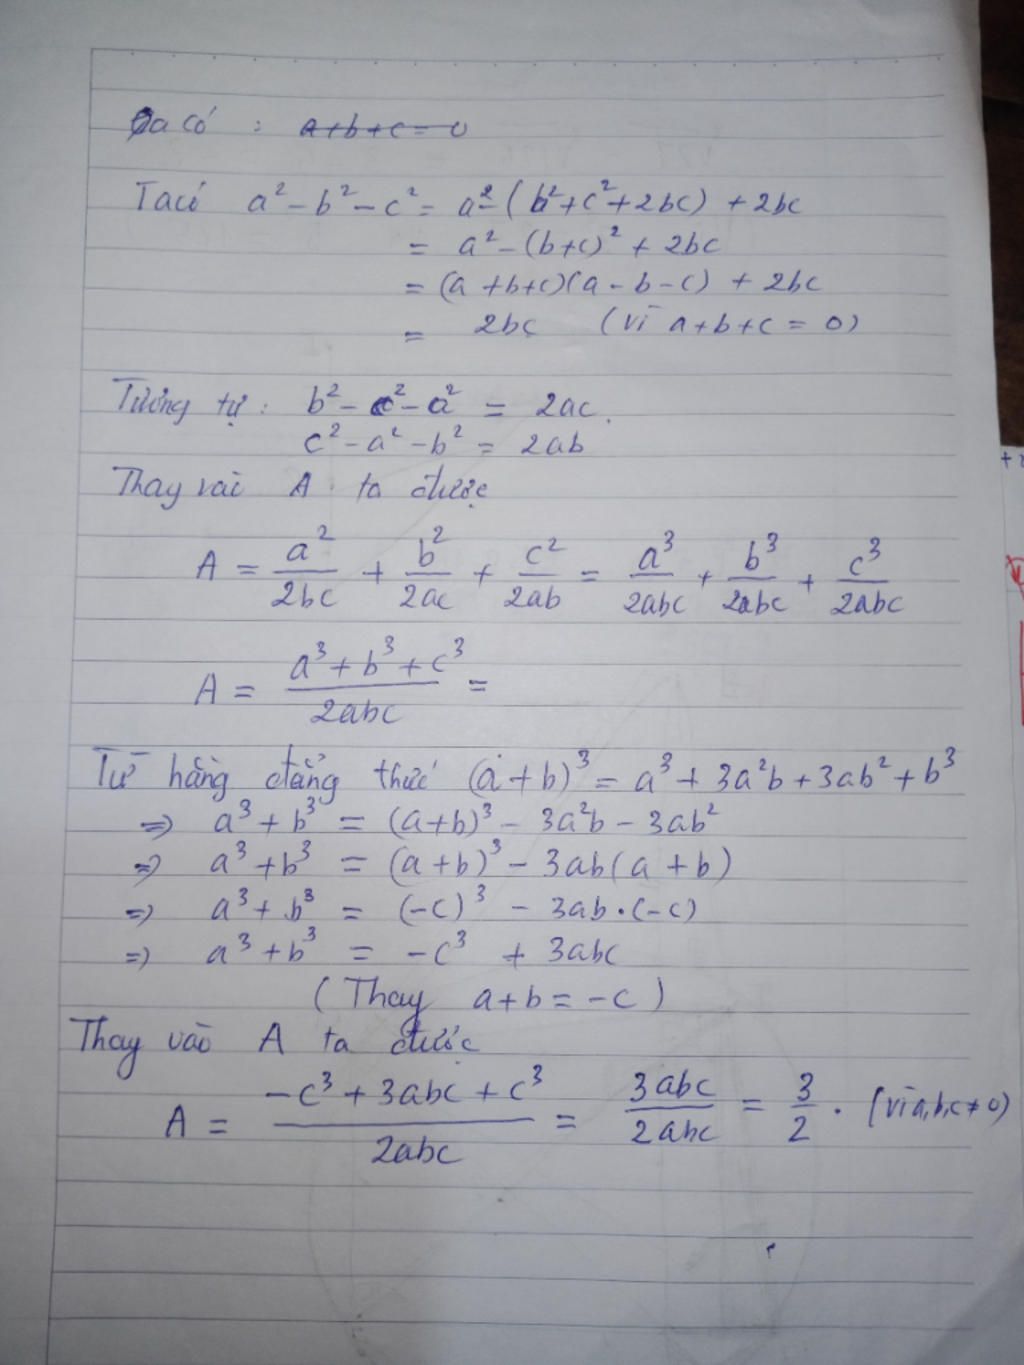 Ta có : a+b+c=0
Ta có a² - b² - c² = a² - (b² + c² + 2bc) + 2bc
= a² - (b+c)² + 2bc
= (a+b+c)(a-b-c) + 2bc
= 2bc (vì a+b+c = 0)
Tương tự : b² - c² - a² = 2ac.
c² - a² - b² = 2ab
Thay vào A ta được
A = a²/2bc + b²/2ac + c²/2ab = a³/2abc + b³/2abc + c³/2abc
A = (a³ + b³ + c³)/2abc =
Từ hằng đẳng thức (a+b)³ = a³ + 3a²b + 3ab² + b³
=> a³ + b³ = (a+b)³ - 3a²b - 3ab²
=> a³ + b³ = (a+b)³ - 3ab(a+b)
=> a³ + b³ = (-c)³ - 3ab.(-c)
=> a³ + b³ = -c³ + 3abc
(Thay a+b = -c)
Thay vào A ta được
A = (-c³ + 3abc + c³)/2abc = 3abc/2abc = 3/2 . (vì a,b,c ≠ 0)